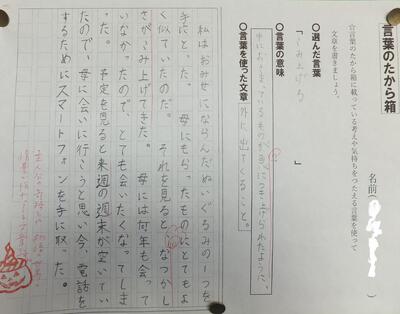 言葉のたから箱
名前(
☆言葉のたから箱に載っている考えや気持ちをつたえる言葉を使って
文章を書きましょう。
○選んだ言葉
「こみ上げる」
○言葉の意味
中におさまっているものが急につき上げられたように、
外に出てくること。
○言葉を使った文章
私はおみせにならんだぬいぐるみの一つを
手にとった。母にもらったものにとてもよ
く似ていたのだ。それを見ると、なつかし
さがこみ上げてきた。母には何年も会って
いなかったので、とても会いたくなってしま
った。予定を見ると来週の週末が空いてい
たので、母に会いに行こうと思い今、電話を
するためにスマートフォンを手に取った。